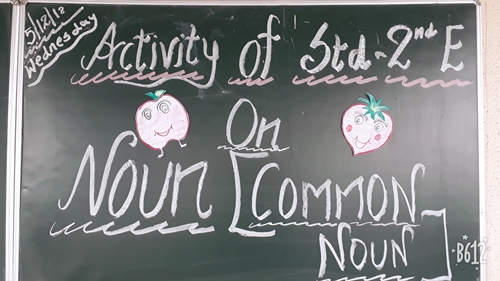 5/12/18
Wednesday
Activity of Std-2nd E
On
Noun [COMMON
NOUN]
B612